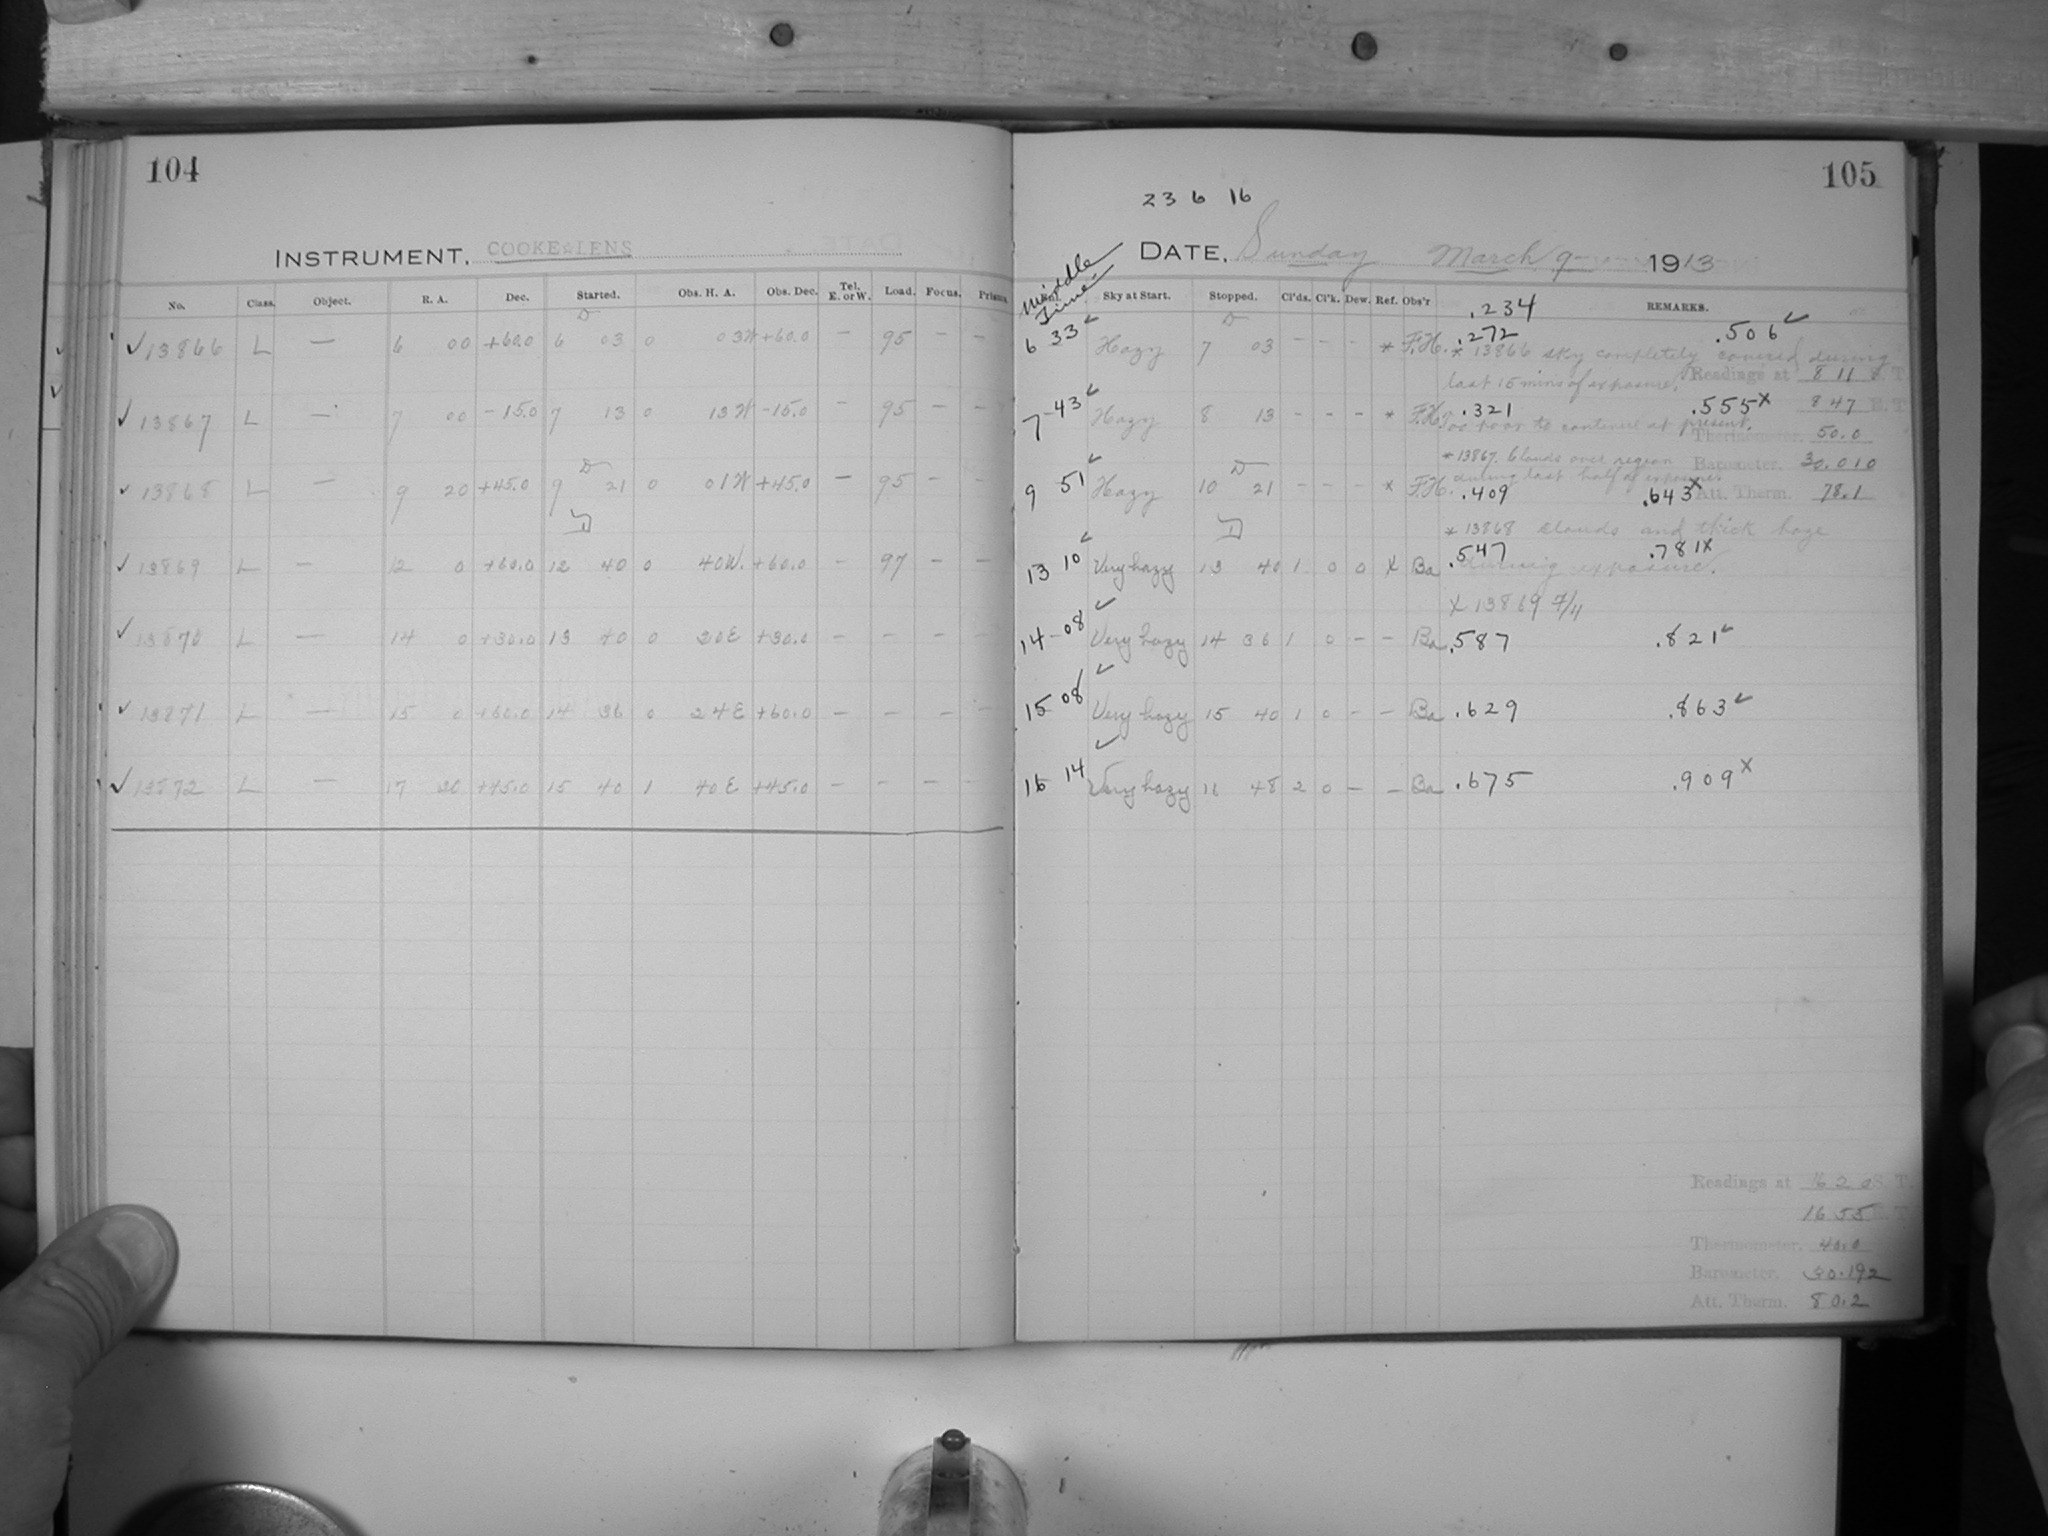 104
105
23 6 16
INSTRUMENT. COOKE LENS
DATE. Sunday March 9 1913
No. Class. Object. R. A. Dec. Started. Obs. H. A. Obs. Dec. Tel. E. or W. Load. Focus. Prisms.
Middle Time Sky at Start. Stopped. Cl'ds. Cl'k. Dew. Ref. Obs'r .234 REMARKS.
✓ 13866 L — 6 00 +60.0 6 03 0 03W +60.0 — 95 — —
6 33 ✓ Hazy 7 03 - - - * F.H. .272 .506 ✓
* 13866 sky completely covered during
last 15 mins of exposure. Readings at 8 11 S. T.
✓ 13867 L — 7 00 -15.0 7 13 0 13W -15.0 — 95 — —
7-43 ✓ Hazy 8 13 - - - * F.H. .321 .555 x 8 47 E. T.
Too poor to continue at present.
Thermometer. 50.0
* 13867. Clouds over region
Barometer. 30.010
during last half of exposure.
✓ 13868 L — 9 20 +45.0 9 21 0 01W +45.0 — 95 — —
9 51 ✓ Hazy 10 21 - - - * F.H. .409 .643 x Att. Therm. 78.1
* 13868 Clouds and thick haze
during exposure.
✓ 13869 L — 12 0 +60.0 12 40 0 40W. +60.0 — 97 — —
13 10 ✓ Very hazy 13 40 1 0 0 X Ba .547 .781 x
X 13869 7/11
✓ 13870 L — 14 0 +30.0 13 40 0 20E +30.0 — — — —
14-08 ✓ Very hazy 14 36 1 0 - - Ba .587 .821 ✓
✓ 13871 L — 15 0 +60.0 14 36 0 24E +60.0 — — — —
15 08 ✓ Very hazy 15 40 1 0 - - Ba .629 .863 ✓
✓ 13872 L — 17 20 +45.0 15 40 1 40E +45.0 — — — —
16 14 ✓ Very hazy 16 48 2 0 - - Ba .675 .909 x
Readings at 16 20 S. T.
16 55 E. T.
Thermometer. 40.0
Barometer. 30.192
Att. Therm. 80.2